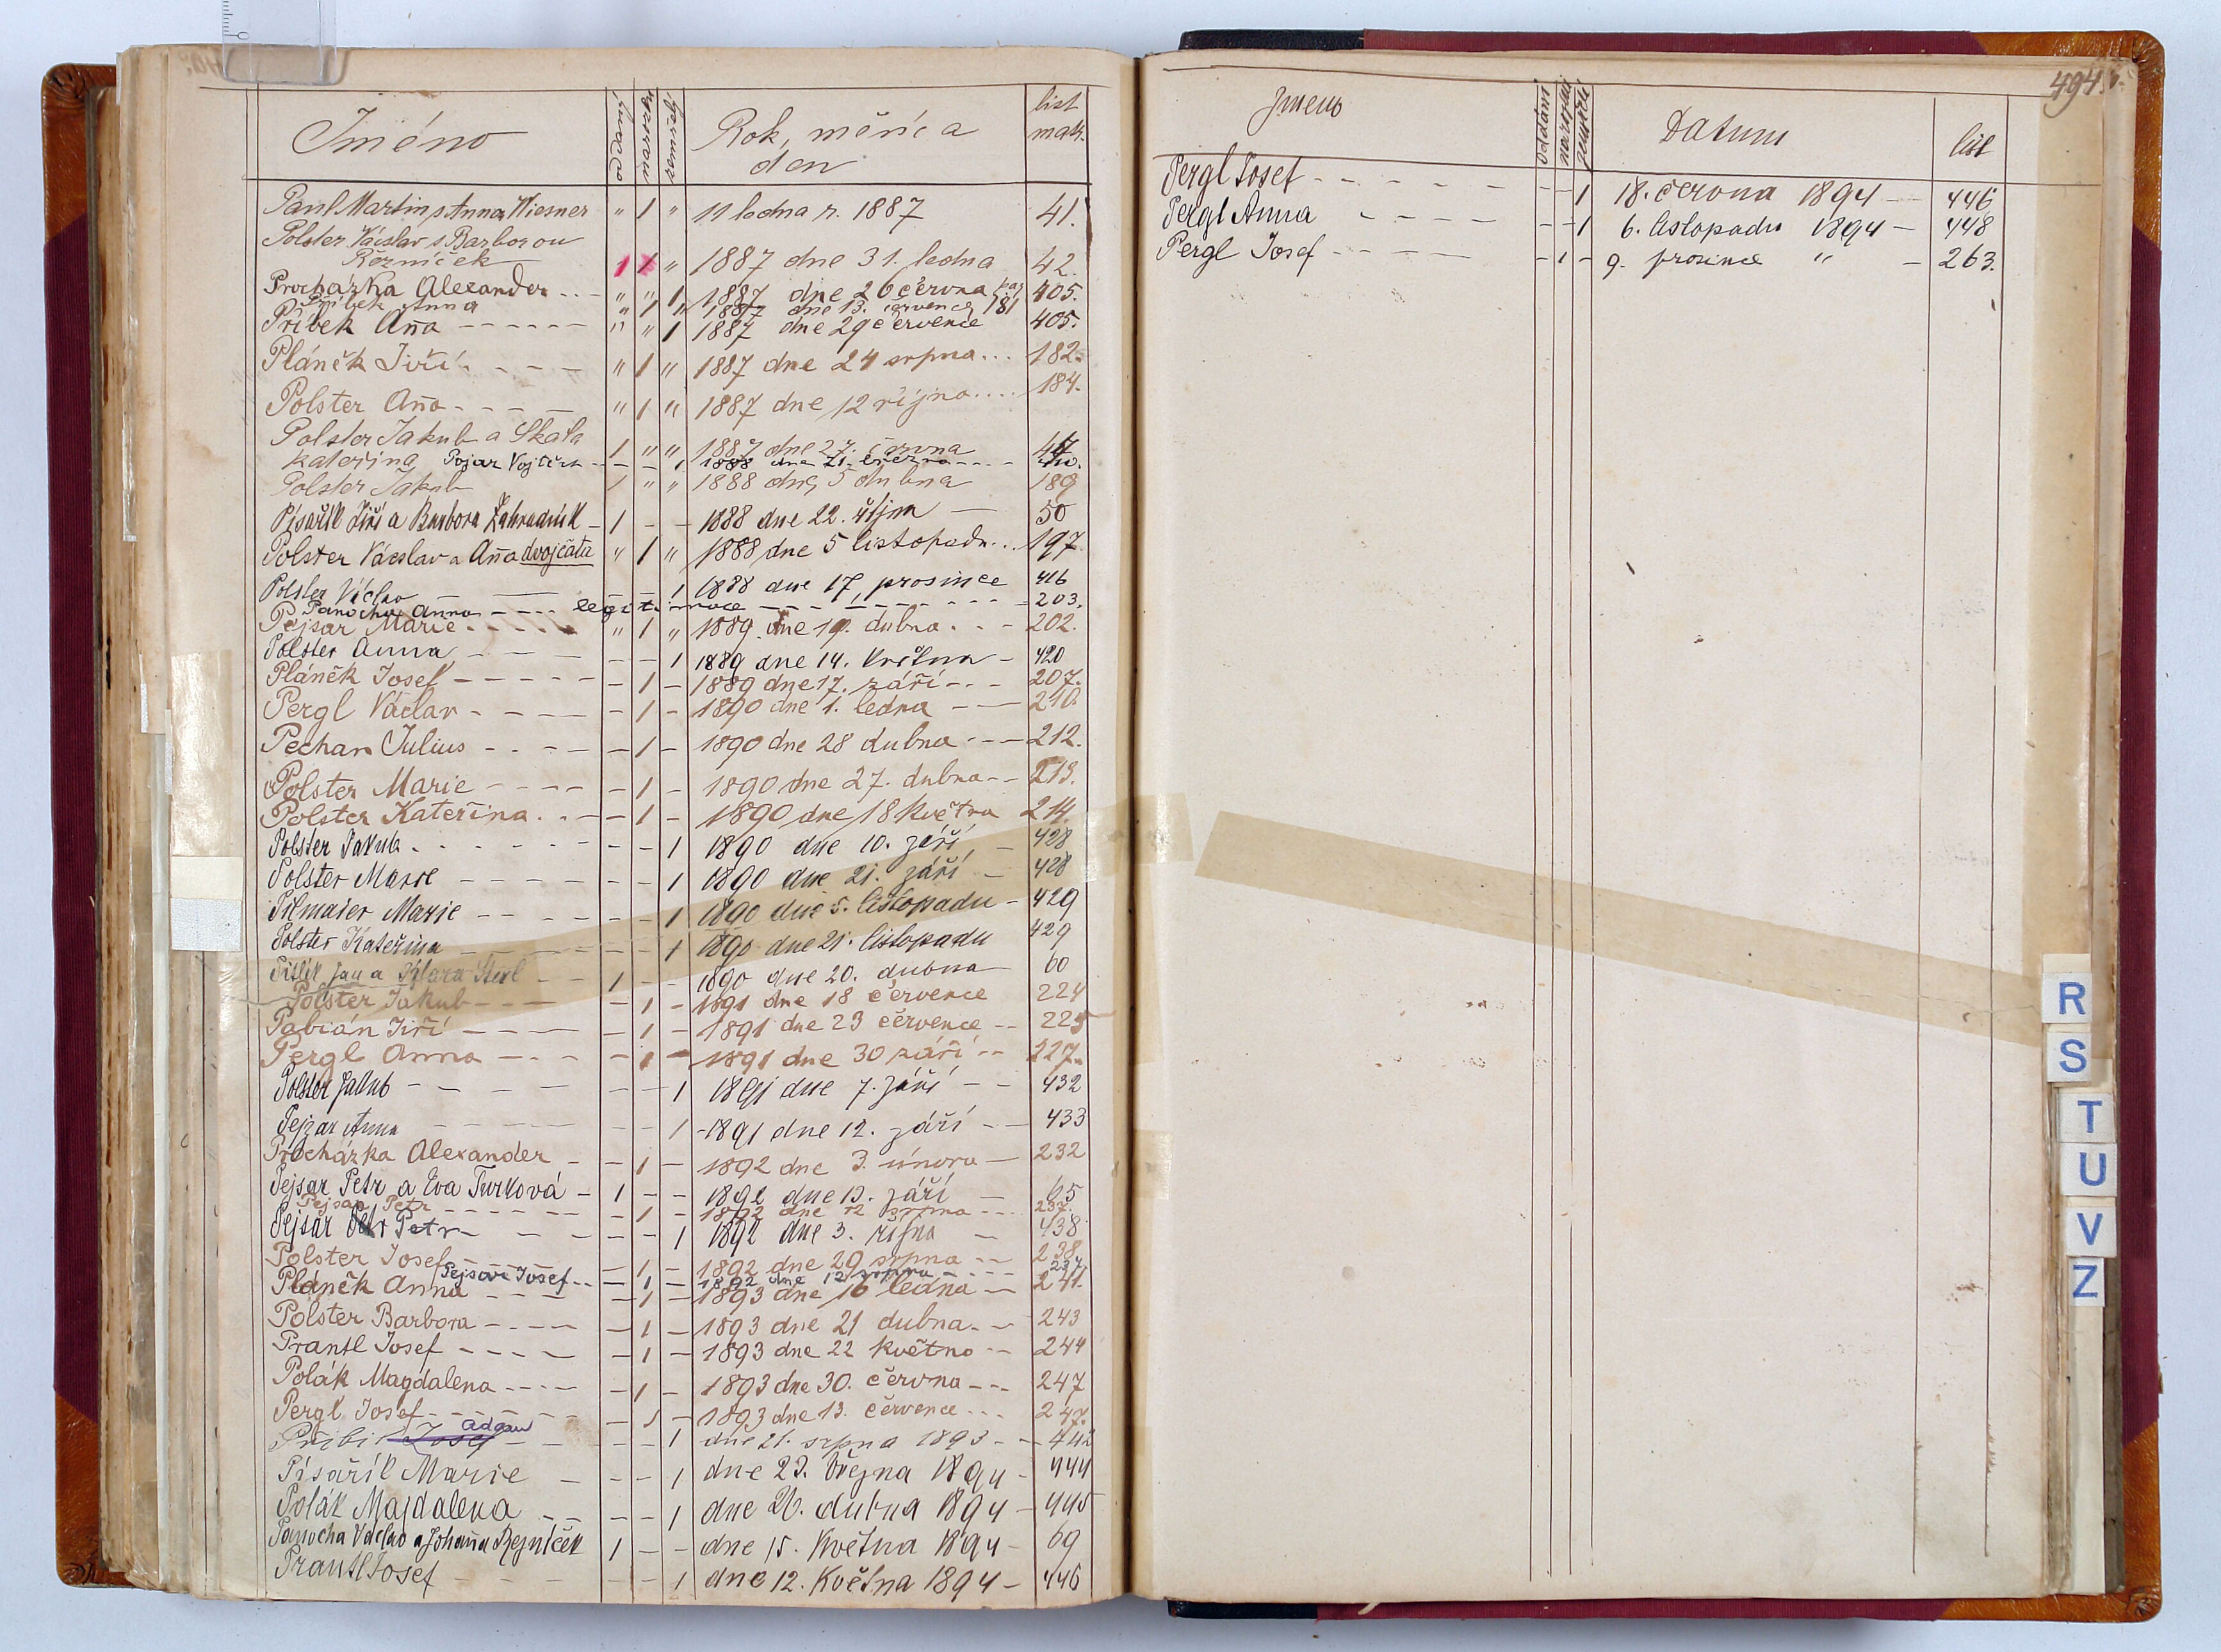 Jméno oddaní narození zemřelý Rok, měsíc a den list matr.
Paul Martin s Anna Wiesner " 1 " 11 ledna r. 1887 41.
Polster Václav s Barborou
Rezníček 1 1 " 1887 dne 31. ledna 42.
Prochazka Alexander " " 1 1887 dne 26 června pag 405.
Přibek Anna " 1 " 1887 dne 13. července 181
Přibek Ana " " 1 1887 dne 29 července 405.
Pláněk Jiří " 1 " 1887 dne 24 srpna 182.
Polster Ana " 1 " 1887 dne 12 října 184.
Polster Jakub a Skala 1 " " 1887 dne 27. června
Kateřina Pojar Vojtěch - - 1 1888 dne
Polster Jakub 1 " " 1888 dne 5 dubna 189
Písařík Jiří a Barbora Zahradník - 1 - - 1888 dne 22. října 50
Polster Václav a Ana dvojčata " 1 " 1888 dne 5 listopadu 197
Polster Václav - - 1 1888 dne 17, prosince 416
Panocha Anna - - - - legitimace - - - 203.
Pejsar Marie " 1 " 1889 dne 19. dubna 202.
Polster Anna - - 1 1889 dne 14. května - 420
Pláněk Josef - 1 - 1889 dne 17. září 207.
Pergl Václav - 1 - 1890 dne 1. ledna 210.
Pechan Julius - 1 - 1890 dne 28 dubna 212.
Polster Marie - 1 - 1890 dne 27. dubna 213.
Polster Kateřina - 1 - 1890 dne 18 května 214.
Polster Jakub - - 1 1890 dne 10. září 428
Polster Marie - - 1 1890 dne 21. září 428
Pilmaier Marie - - 1 1890 dne 5. listopadu - 429
Polster Kateřina - - 1 1890 dne 21. listopadu 429
Jan a Klara 1 - - 1890 dne 20. dubna 60
Polster Jakub - 1 - 1891 dne 18 července 224
Pabián Jiří - 1 - 1891 dne 23 července 225
Pergl Anna - 1 - 1891 dne 30 září 227.
Polster Jakub - - 1 1891 dne 7. září 432
Pejzar Anna - - 1 1891 dne 12. září 433
Procházka Alexander - 1 - 1892 dne 3. února 232
Pejsar Petr a Eva Turková - 1 - - 1892 dne 13. září 65
Pejsar Petr - 1 - 1892 dne 12 srpna 237.
Pejsar Petr - - 1 1892 dne 3. října 438
Polster Josef - 1 - 1892 dne 29 srpna 238
Pejsar Josef - 1 - 1892 dne 12 srpna 237
Pláněk Anna - 1 - 1893 dne 16 ledna 241.
Polster Barbora - 1 - 1893 dne 21 dubna 243
Prantl Josef - 1 - 1893 dne 22 května 244
Polák Magdalena - 1 - 1893 dne 30. června 247
Pergl Josef - 1 - 1893 dne 13. července 247.
Adam
Přibil Josef - - 1 dne 21. srpna 1893 442
Písařík Marie - - 1 dne 23. 1894 444
Polák Majdalena - - 1 dne 26. dubna 1894 445
Panocha Václav a Johana Rejníček 1 - - dne 15. Května 1894 - 69
Prantl Josef - - 1 dne 12. Května 1894 - 446
494.
Jmeno Oddání narození zemřelí Datum list
Pergl Josef - - 1 18. června 1894 446
Pergl Anna - - 1 6. listopadu 1894 - 448
Pergl Josef - 1 - 9. prosince " - 263.
R
S
T
U
V
Z